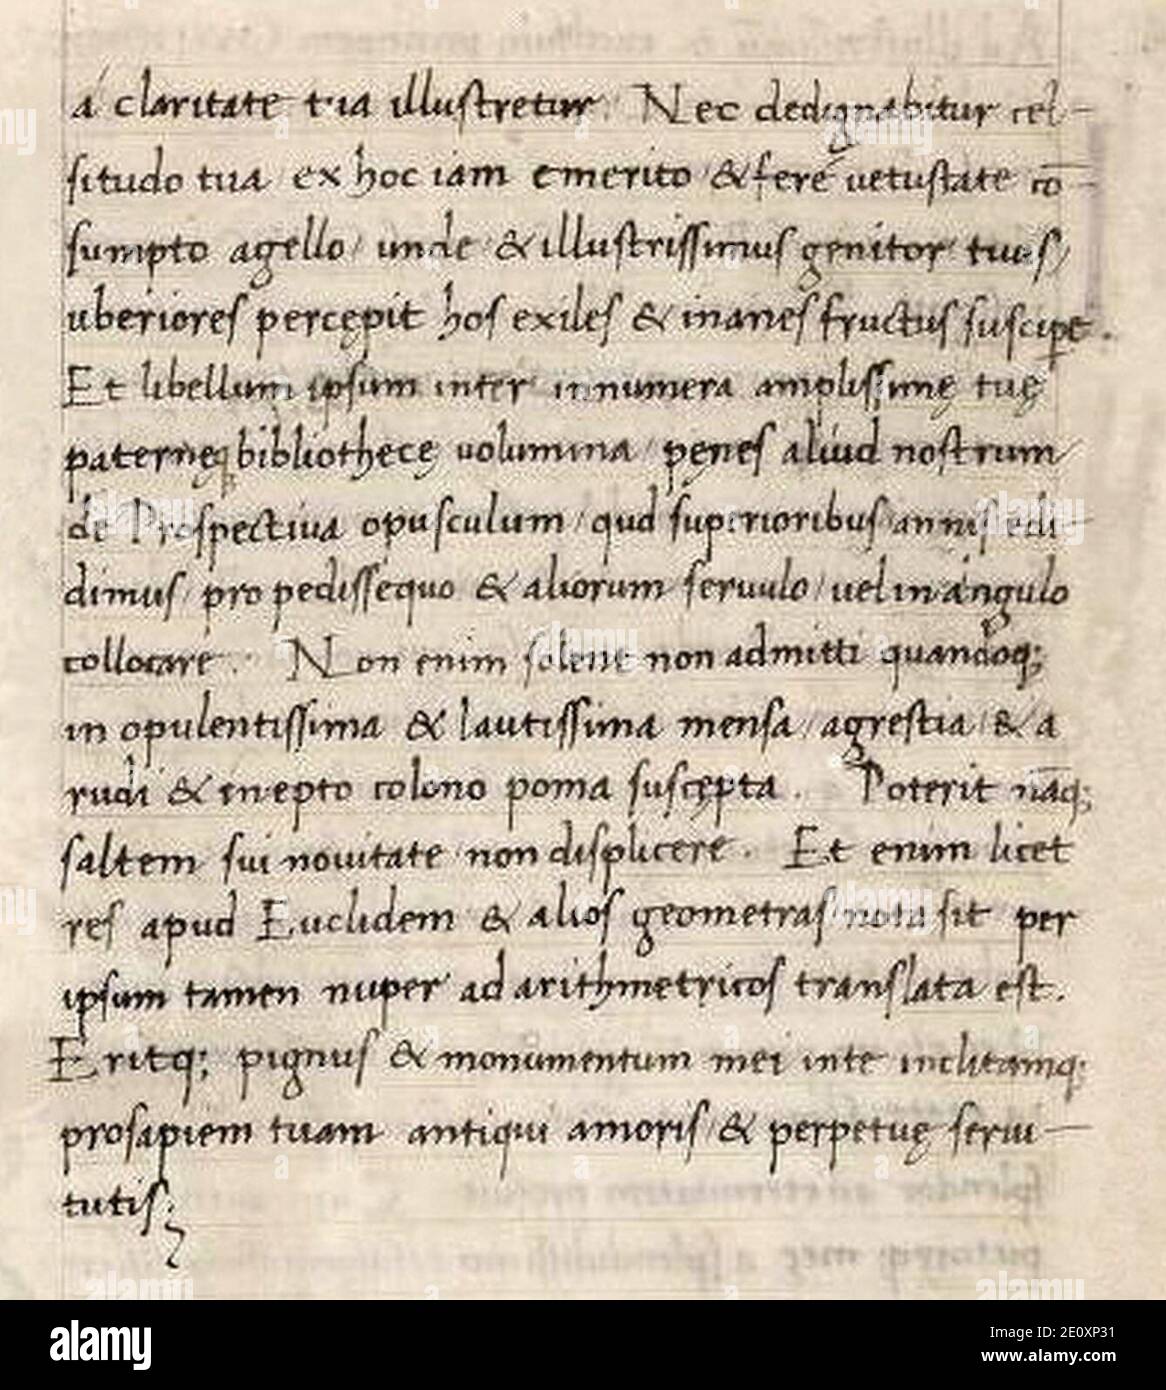 á claritate tua illustretur. Nec dedignabitur cel-
situdo tua ex hoc iam emerito / & ferè vetustate cō-
sumpto agello / unde / & illustrissimus genitor tuus /
uberiores percępit hos exiles & inanes fructus suscipere.
Et libellum ipsum inter innumera amplissimę tuę
paternęq bibliothecę volumina / penes aliud nostrum
de Prospectiva opusculum / qud superioribus annis edi-
dimus / pro pedissequo & aliorum servulo / vel in ángulo
collocare. Non enim solent non admitti quandoq;
in opulentissima & lautissima mensa / agrestia / & a
rudi & inepto colono poma suscepta. Poterit nāq;
saltem sui novitate non displicere. Et enim licet
res apud Euclidem & alios geometras nota sit per
ipsum tamen nuper ad arithmetricos translata est.
Eritq; pignus & monumentum mei in te inclitamq;
prosapiem tuam antiqui amoris / & perpetuę servi-
tutis;
alamy
Image ID: 2E0XP31
www.alamy.com